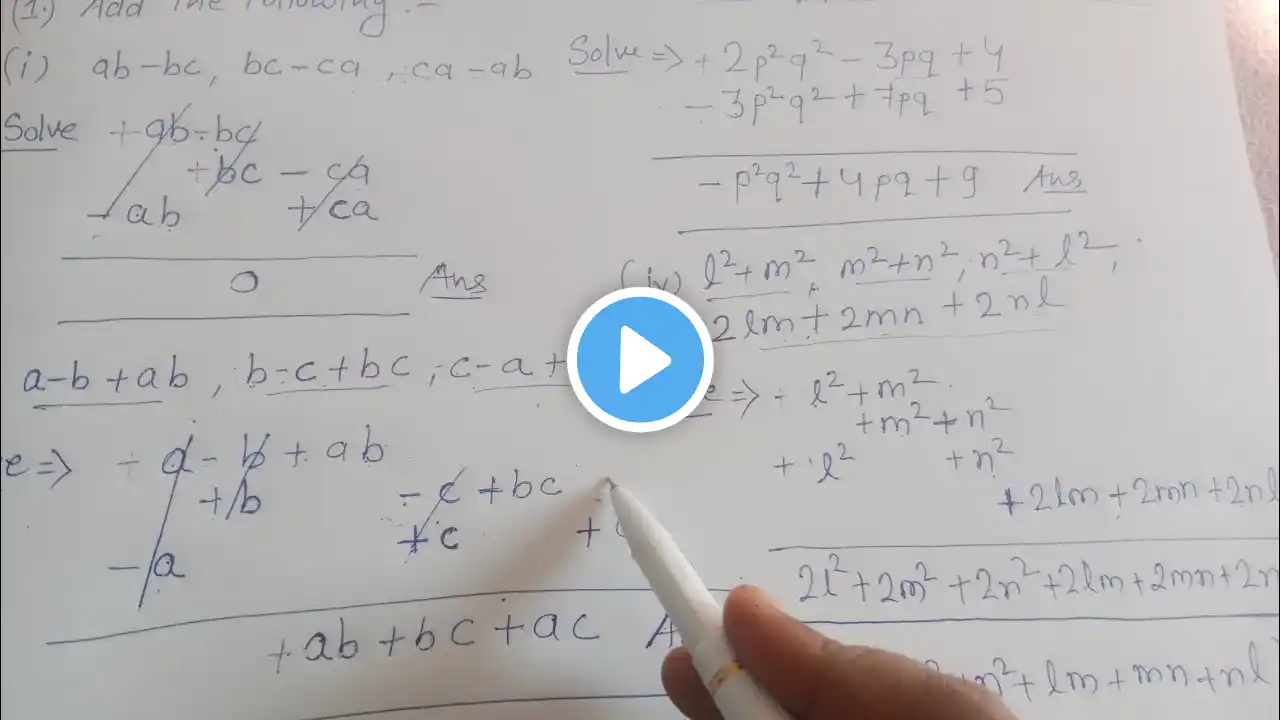 (1.) Add the following:-
(i) ab-bc, bc-ca, ca-ab
Solve +ab-bc
+bc - ca
- ab + ca
0 Ans
a-b+ab, b-c+bc, c-a+
=> + a - b + ab
+b - c +bc
-a +c +
+ab+bc+ac
Solve => +2p²q² - 3pq + 4
- 3p²q² + 7pq + 5
- p²q² + 4pq + 9 Ans
(iv) l²+m², m²+n², n²+l²,
2lm + 2mn + 2nl
=> + l²+m²
+m²+n²
+ l² +n²
+2lm+2mn+2nl
2l²+2m²+2n²+2lm+2mn+2n
+n²+lm+mn+nl